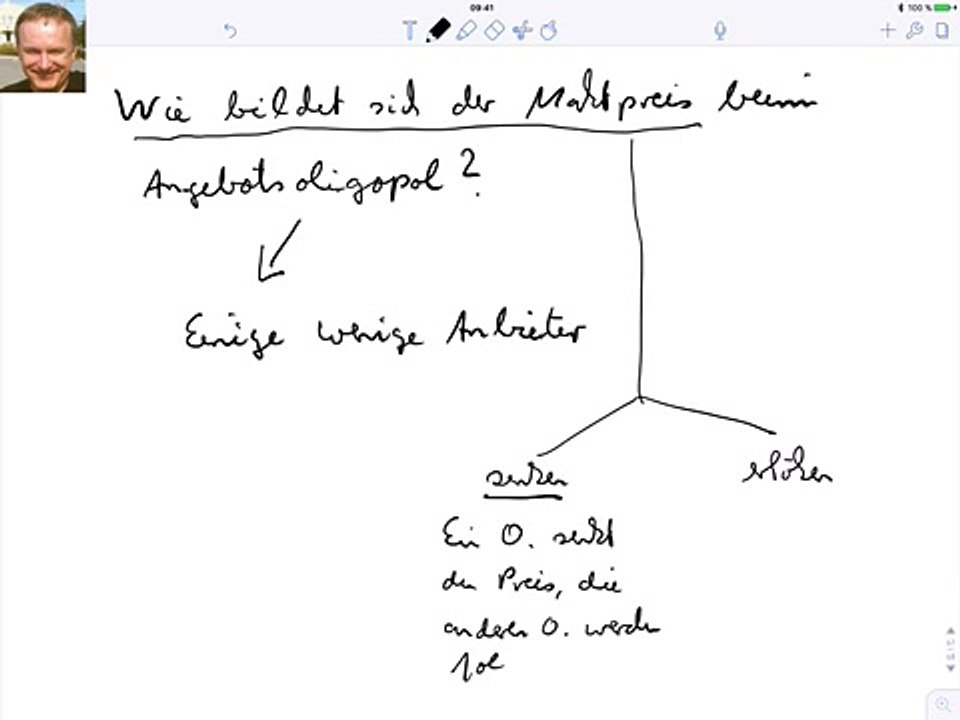 09:41
100 %
Wie bildet sich der Marktpreis beim
Angebotsoligopol?
Einige wenige Anbieter
senken
erhöhen
Ein O. senkt
den Preis, die
anderen O. werden
fol